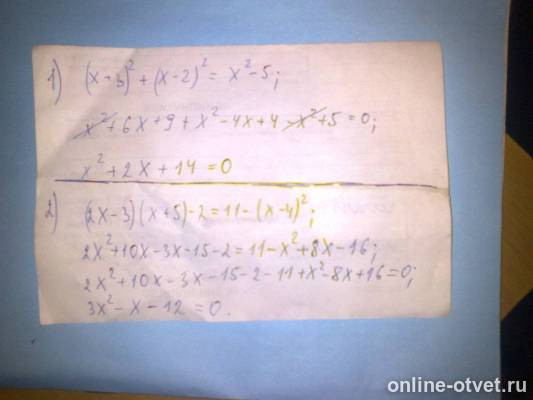 1) (x+3)² + (x-2)² = x²-5;
x²+6x+9+x²-4x+4-x²+5=0;
x²+2x+14=0
2) (2x-3)(x+5)-2=11-(x-4)²;
2x²+10x-3x-15-2=11-x²+8x-16;
2x²+10x-3x-15-2-11+x²-8x+16=0;
3x²-x-12=0.
online-otvet.ru